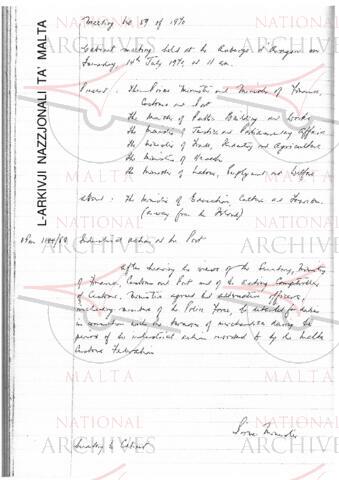 Meeting No. 59 of 1970
Cabinet meeting held at the Auberge d'Aragon on
Tuesday, 14th July 1970 at 11 am.
Present : The Prime Minister and Minister of Finance,
Customs and Port
The Minister of Public Building and Works
The Minister of Justice and Parliamentary Affairs
The Minister of Trade, Industry and Agriculture
The Minister of Health
The Minister of Labour, Employment and Welfare
Absent : The Minister of Education, Culture and Tourism
(away from the Island)
Industrial action at the Port
After hearing the views of the Secretary, Ministry
of Finance, Customs and Port and of the Acting Comptroller
of Customs, Ministers agreed that alternative officers,
including members of the Police Force, be detailed for duties
in connection with the of merchandise during the
period of the industrial action resorted to by the Malta
Customs Federation
Prime Minister
Secretary to Cabinet
L-ARKIVJI NAZZJONALI TA' MALTA
NATIONAL
ARCHIVES
MALTA